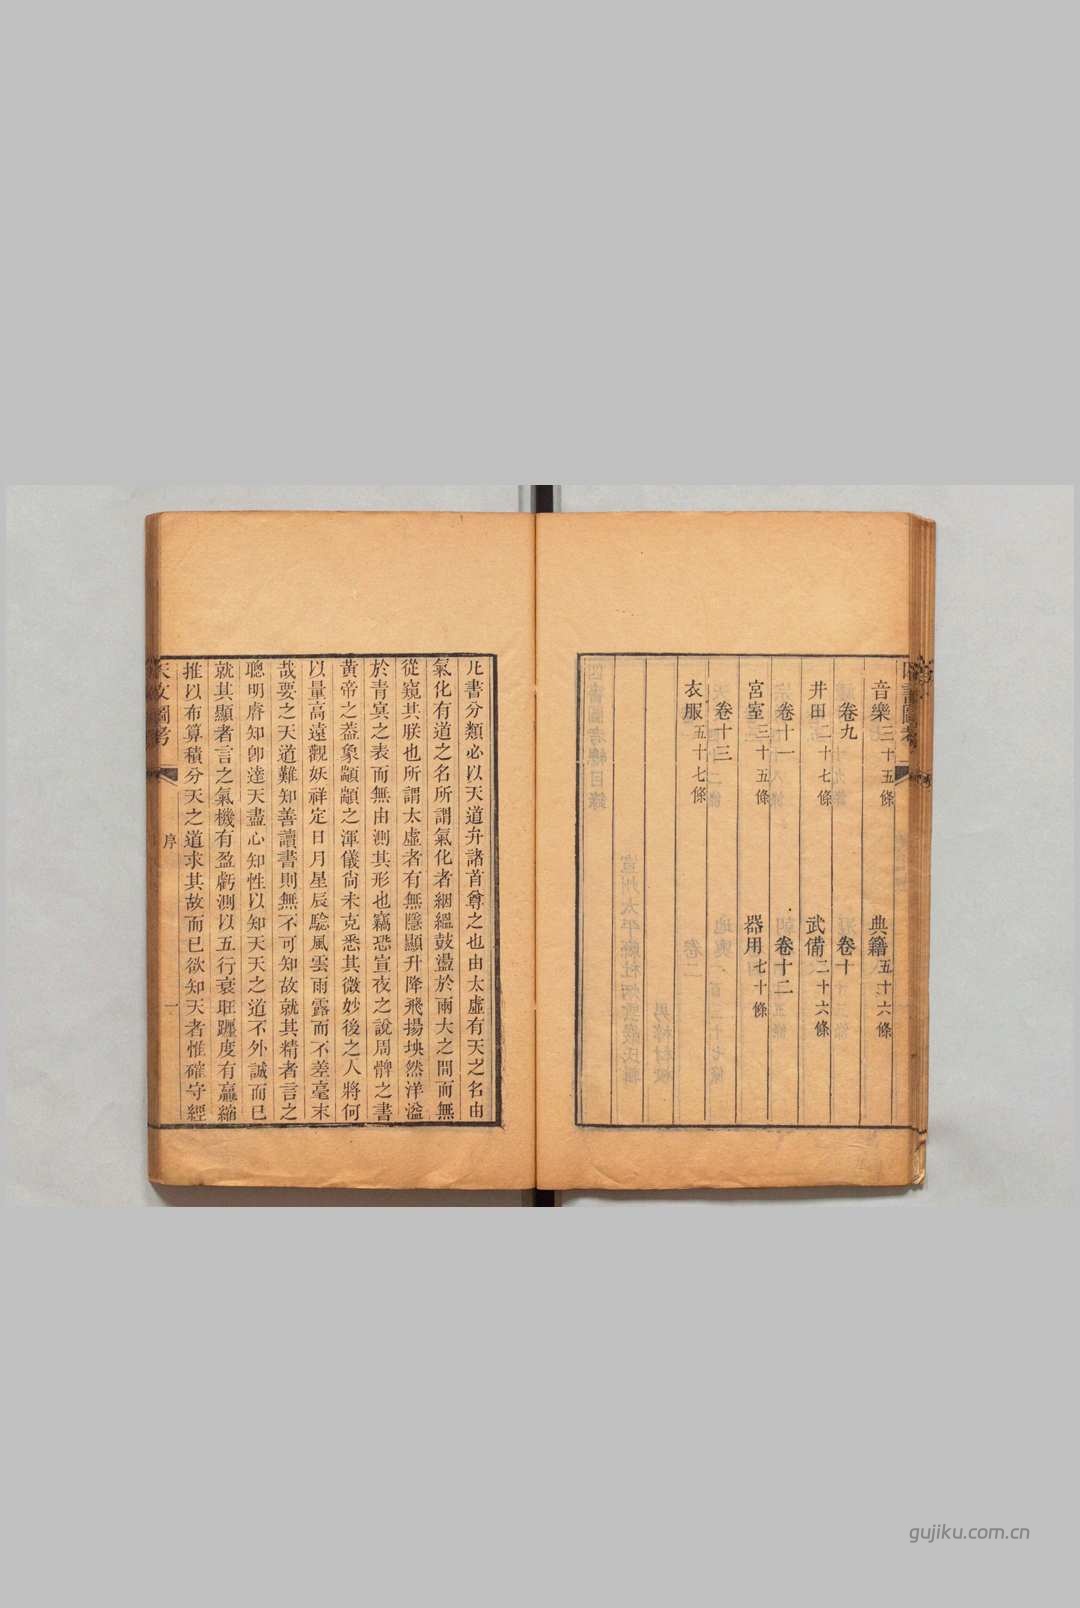 音樂三十五條
典籍五十六條
卷九
卷十
井田二十七條
武備二十六條
卷十一
卷十二
宮室三十五條
器用七十條
卷十三
衣服五十七條
凡書分類必以天道弁諸首尊之也由太虛有天之名由
氣化有道之名所謂氣化者絪縕鼓盪於兩大之間而無
從窺其朕也所謂太虛者有無隱顯升降飛揚坱然洋溢
於青冥之表而無由測其形也竊恐宣夜之說周髀之書
黃帝之葢象顓頊之渾儀尙未克悉其微妙後之人將何
以量高遠觀妖祥定日月星辰騐風雲雨露而不差毫末
哉要之天道難知善讀書則無不可知故就其精者言之
聰明睿知卽達天盡心知性以知天天之道不外誠而已
就其顯者言之氣機有盈虧測以五行衰旺躔度有羸縮
推以布算積分天之道求其故而已欲知天者惟確守經
天文圖考
序
一
gujiku.com.cn